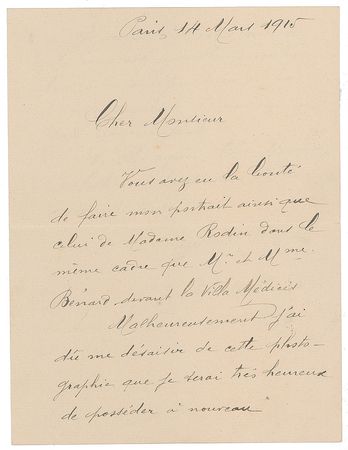 Paris, 14 Mars 1915
Cher Monsieur
Vous avez eu la bonté
de faire mon portrait ainsi que
celui de Madame Rodin dans le
même cadre que Mr. et Mme.
Bénard devant la Villa Médicis
Malheureusement j'ai
dû me désaisir de cette photo-
graphie que je serai très heureux
de posséder à nouveau